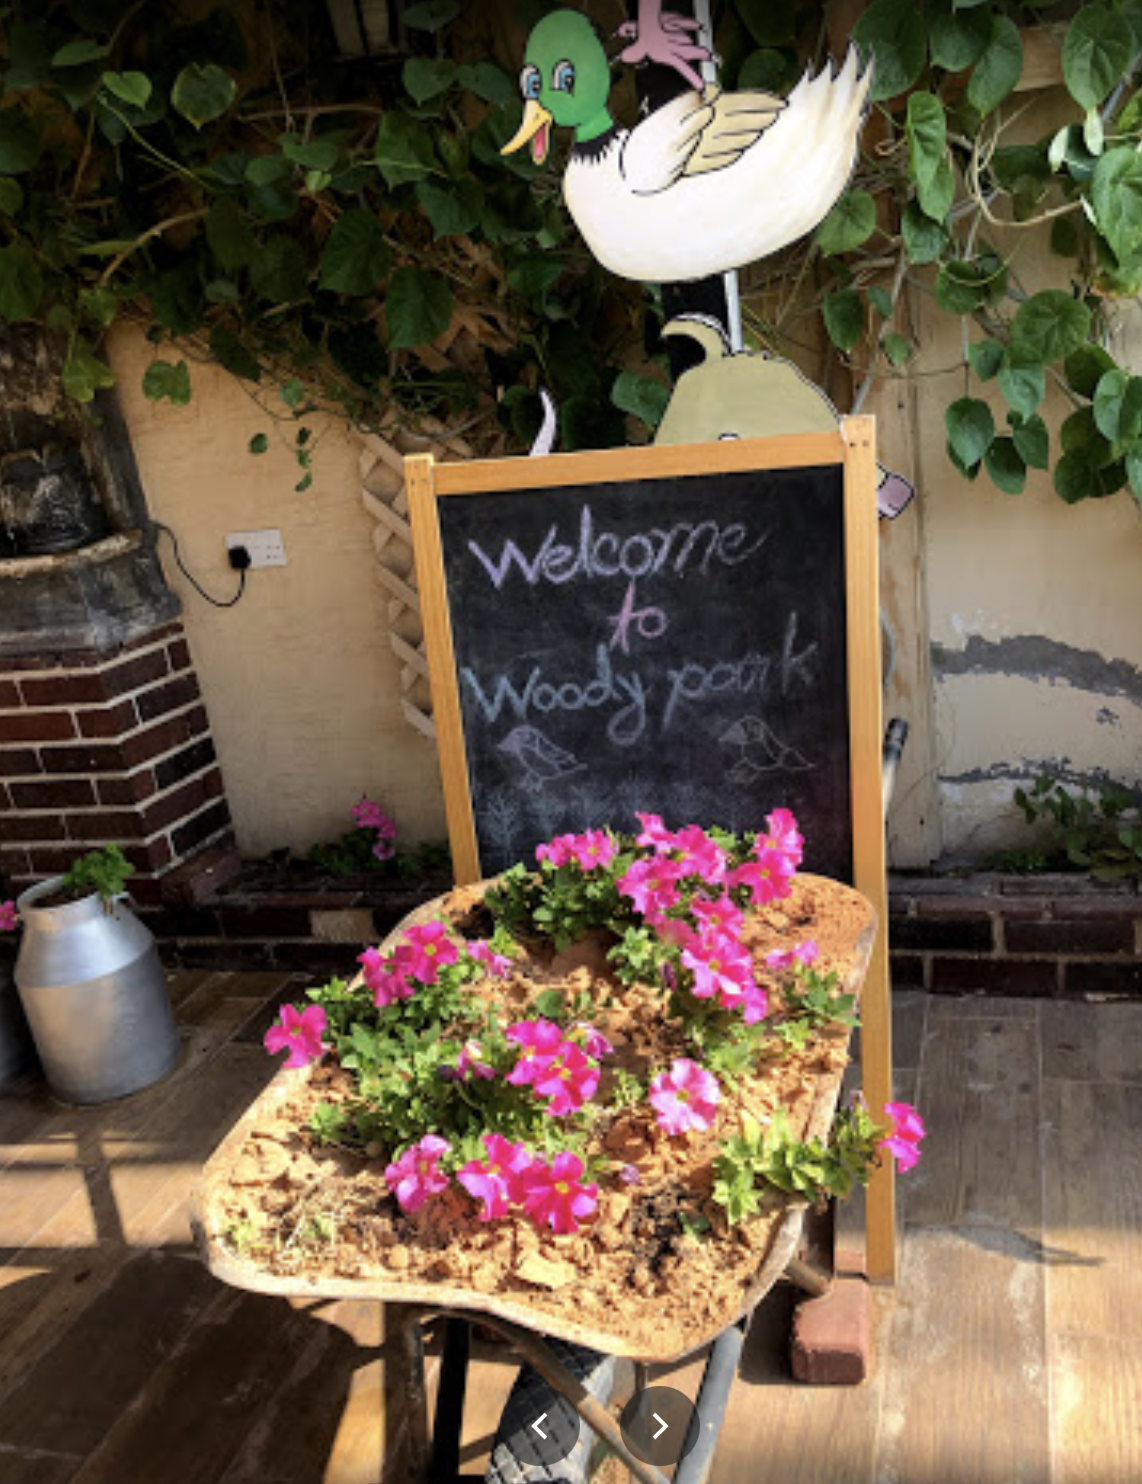 Welcome
to
Woody park